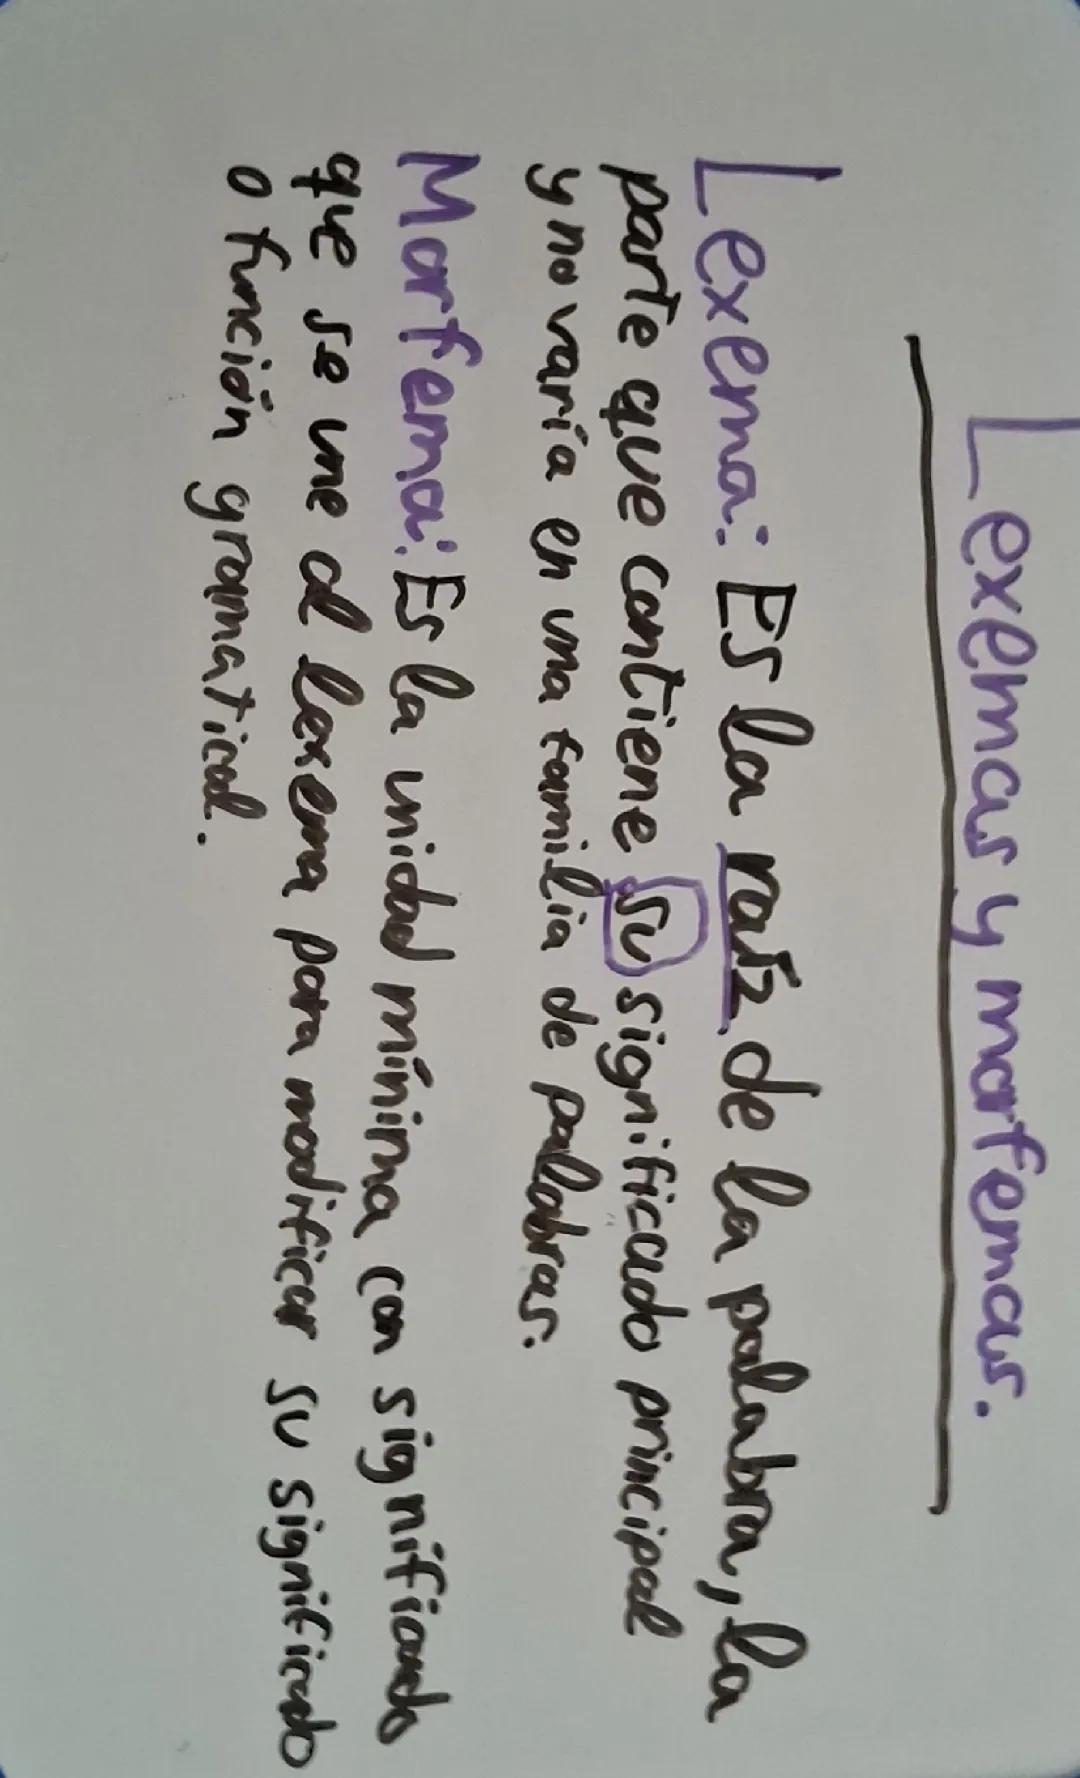 Lexemas y morfemas.
Lexema: Es la raíz de la palabra, la
parte que contiene su significado principal
y no varía en una familia de palabras.
Morfema: Es la unidad mínima con significado
que se une al lexema para modificar su significado
o función gramatical.